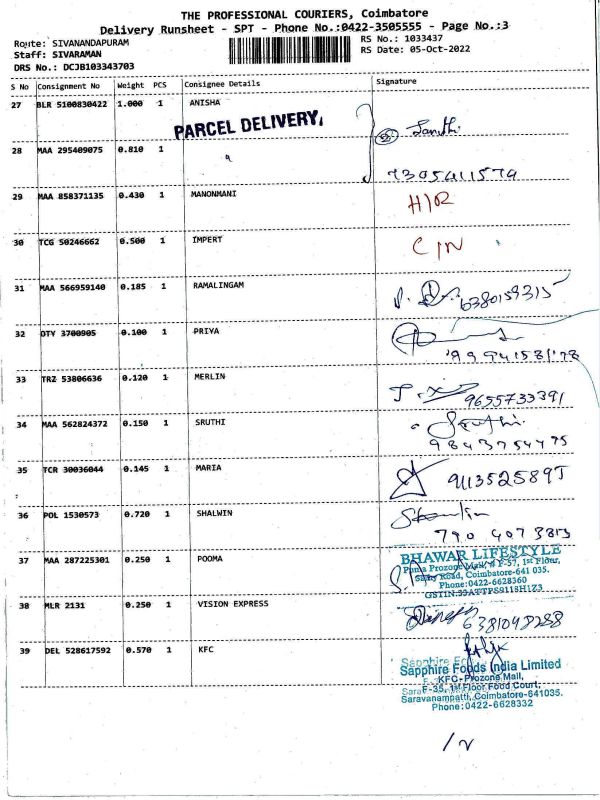 THE PROFESSIONAL COURIERS, Coimbatore
Delivery Runsheet - SPT - Phone No.:0422-3505555 - Page No.:3
Route: SIVANANDAPURAM
RS No.: 1033437
Staff: SIVARAMAN
RS Date: 05-Oct-2022
DRS No.: DCJB103343703
S No Consignment No Weight PCS Consignee Details Signature
27 BLR 5100830422 1.000 1 ANISHA
PARCEL DELIVERY.
28 MAA 295409075 0.810 1
29 MAA 858371135 0.430 1 MANONMANI H/R
30 TCG 50246662 0.500 1 IMPERT C/N
31 MAA 566959140 0.185 1 RAMALINGAM
6380159315
32 DTY 3700905 0.100 1 PRIYA
33 TRZ 53806636 0.120 1 MERLIN
9655733391
34 MAA 562824372 0.150 1 SRUTHI
9843754475
35 TCR 30036044 0.145 1 MARIA
9113525895
36 POL 1530573 0.720 1 SHALWIN
790 407 3813
37 MAA 287225301 0.250 1 POOMA
BHAWAR LIFESTYLE
Prozone Mall, # F-57, 1st Floor,
Road, Coimbatore-641 035.
Phone:0422-6628360
38 MLR 2131 0.250 1 VISION EXPRESS
6381048288
39 DEL 528617592 0.570 1 KFC
Sapphire Foods India Limited
KFC-Prozone Mall,
F-35, 1st Floor Food Court,
Saravanampatti, Coimbatore-641035.
Phone:0422-6628332